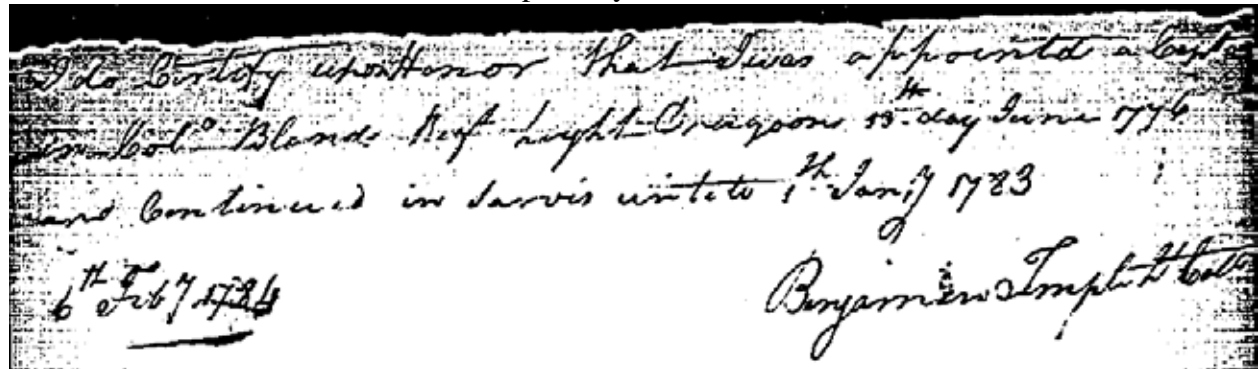 I do Certify upon Honor that I was appointd a Capta
in Colo Blands Regt Light Dragoons 13th day June 1776
and Continued in Sarvis untell 1th Jany 1783
6th Feby 1784
Benjamin Temple Lt Collo